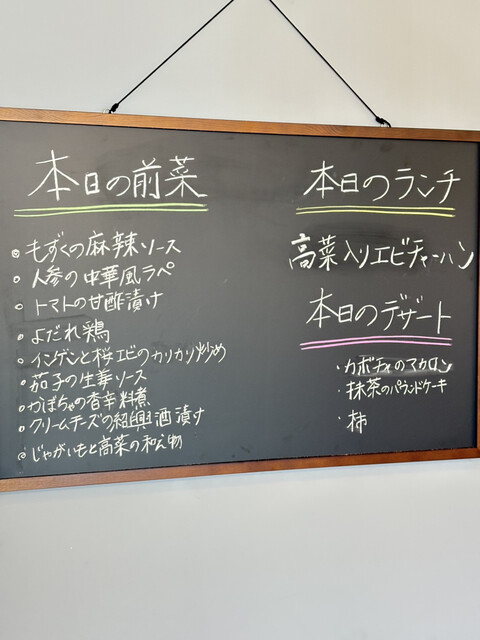 本日の前菜
◎もずくの麻辣ソース
○人参の中華風ラペ
○トマトの甘酢漬け
○よだれ鶏
○インゲンと桜エビのカリカリ炒め
○茄子の生姜ソース
○かぼちゃの香辛料煮
○クリームチーズの紹興酒漬け
◎じゃがいもと高菜の和え物
本日のランチ
高菜入りエビチャーハン
本日のデザート
・カボチャのマカロン
・抹茶のパウンドケーキ
・柿